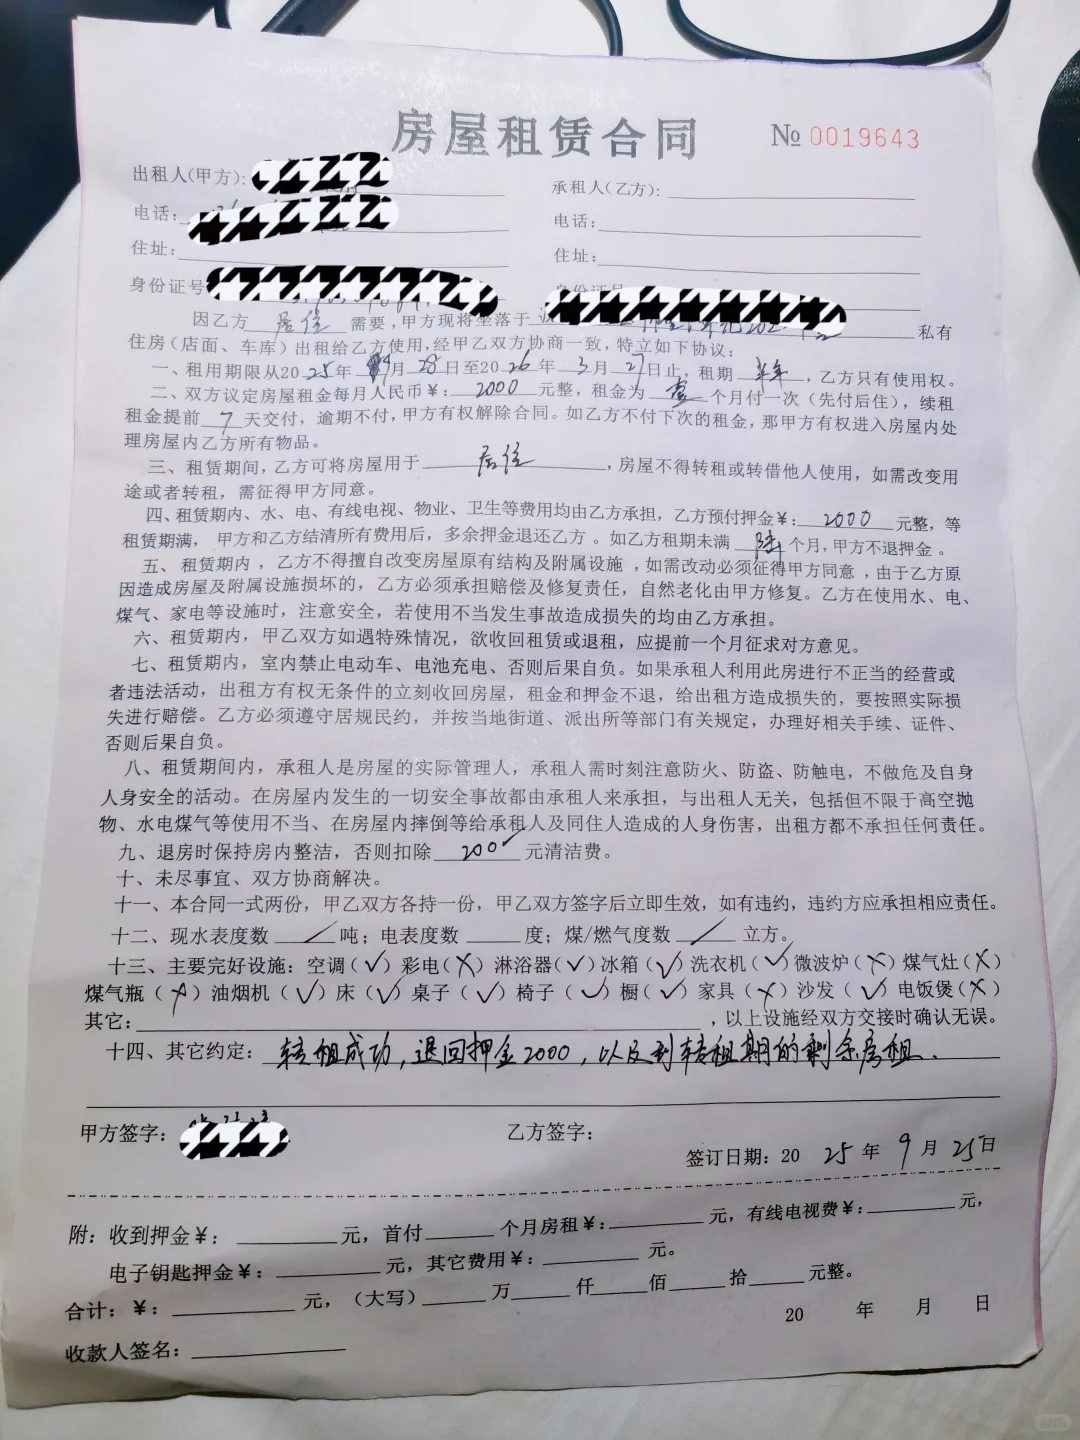 房屋租赁合同 № 0019643
出租人(甲方): 承租人(乙方):
电话: 电话:
住址: 住址:
身份证号
因乙方 居住 需要,甲方现将坐落于 私有
住房(店面、车库)出租给乙方使用,经甲乙双方协商一致,特立如下协议:
一、租用期限从2025年 9月 28日至2026年 3月 27日止,租期 半年 ,乙方只有使用权。
二、双方议定房屋租金每月人民币¥: 2000 元整,租金为 壹 个月付一次(先付后住),续租
租金提前 7 天交付,逾期不付,甲方有权解除合同。如乙方不付下次的租金,那甲方有权进入房屋内处
理房屋内乙方所有物品。
三、租赁期间,乙方可将房屋用于 居住 ,房屋不得转租或转借他人使用,如需改变用
途或者转租,需征得甲方同意。
四、租赁期内、水、电、有线电视、物业、卫生等费用均由乙方承担,乙方预付押金¥: 2000 元整,等
租赁期满, 甲方和乙方结清所有费用后,多余押金退还乙方 。如乙方租期未满 陆 个月,甲方不退押金 。
五、 租赁期内 ,乙方不得擅自改变房屋原有结构及附属设施 ,如需改动必须征得甲方同意 ,由于乙方原
因造成房屋及附属设施损坏的,乙方必须承担赔偿及修复责任,自然老化由甲方修复。乙方在使用水、电、
煤气、家电等设施时,注意安全,若使用不当发生事故造成损失的均由乙方承担。
六、租赁期内,甲乙双方如遇特殊情况,欲收回租赁或退租,应提前一个月征求对方意见。
七、租赁期内,室内禁止电动车、电池充电、否则后果自负。如果承租人利用此房进行不正当的经营或
者违法活动,出租方有权无条件的立刻收回房屋,租金和押金不退,给出租方造成损失的,要按照实际损
失进行赔偿。乙方必须遵守居规民约,并按当地街道、派出所等部门有关规定,办理好相关手续、证件、
否则后果自负。
八、租赁期间内,承租人是房屋的实际管理人,承租人需时刻注意防火、防盗、防触电,不做危及自身
人身安全的活动。在房屋内发生的一切安全事故都由承租人来承担,与出租人无关,包括但不限于高空抛
物、水电煤气等使用不当、在房屋内摔倒等给承租人及同住人造成的人身伤害,出租方都不承担任何责任。
九、退房时保持房内整洁,否则扣除 200 元清洁费。
十、未尽事宜、双方协商解决。
十一、本合同一式两份,甲乙双方各持一份,甲乙双方签字后立即生效,如有违约,违约方应承担相应责任。
十二、现水表度数 / 吨;电表度数 度;煤/燃气度数 / 立方。
十三、主要完好设施:空调(✓)彩电(×)淋浴器(✓)冰箱(✓)洗衣机(✓)微波炉(×)煤气灶(×)
煤气瓶(×)油烟机(✓)床(✓)桌子(✓)椅子(✓)橱(✓)家具(×)沙发(✓)电饭煲(×)
其它: ,以上设施经双方交接时确认无误。
十四、其它约定: 转租成功,退回押金2000,以及到转租期的剩余房租.
甲方签字: 乙方签字:
签订日期:2025年 9月 25日
附:收到押金¥: 元,首付 个月房租¥: 元,有线电视费¥: 元,
电子钥匙押金¥: 元,其它费用¥: 元。
合计:¥: 元,(大写) 万 仟 佰 拾 元整。
20 年 月 日
收款人签名: